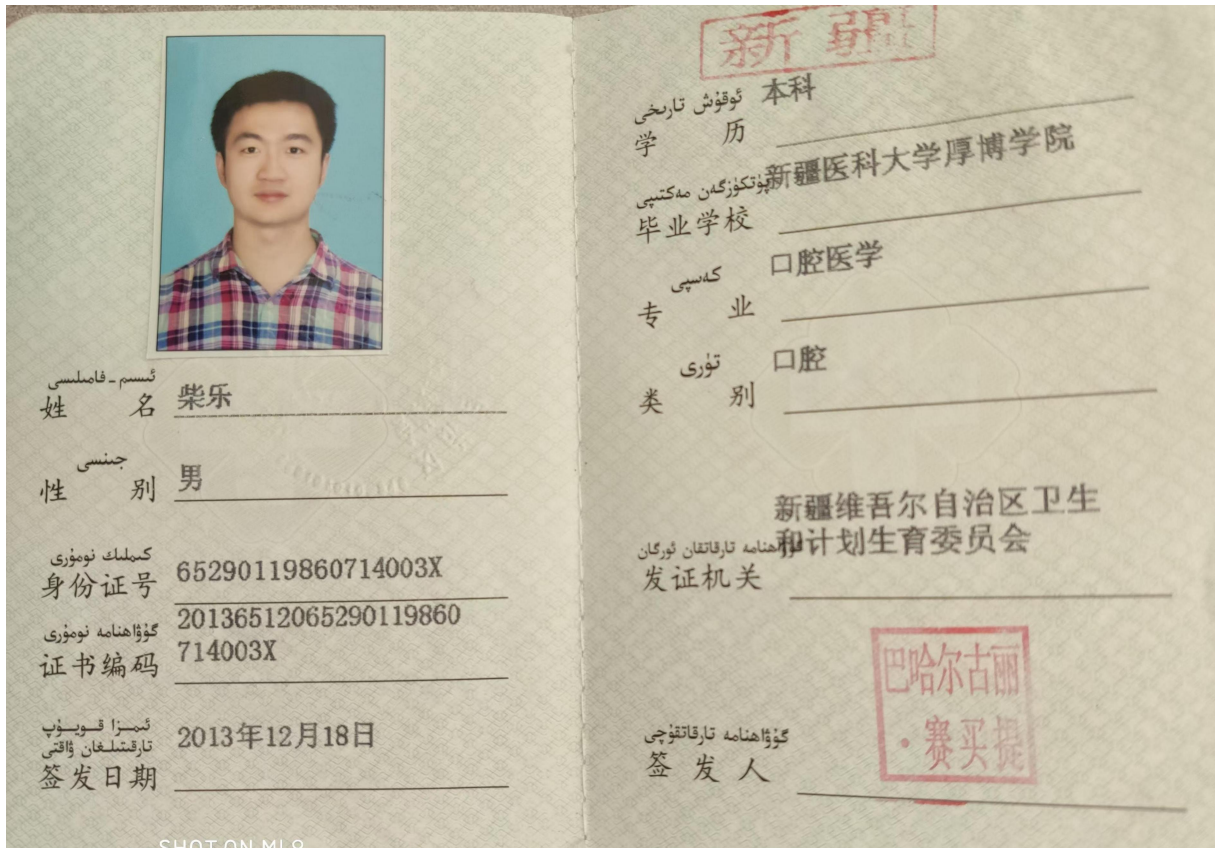 ئىسىم - فامىلىسى
姓 名 柴乐
جىنسى
性 别 男
كىملىك نومۇرى
身份证号 65290119860714003X
گۇۋاھنامە نومۇرى
证书编码 20136512065290119860
714003X
ئىمىزا قويۇپ
تارقىتىلغان ۋاقتى
签发日期 2013年12月18日
SHOT ON MI 8
新疆
ئوقۇش تارىخى
学 历 本科
پۈتكۈزگەن مەكتىپى
毕业学校 新疆医科大学厚博学院
كەسپى
专 业 口腔医学
تۈرى
类 别 口腔
新疆维吾尔自治区卫生
和计划生育委员会
گۇۋاھنامە تارقاتقان ئورگان
发证机关
巴哈尔古丽
·赛买提
گۇۋاھنامە تارقاتقۇچى
签 发 人